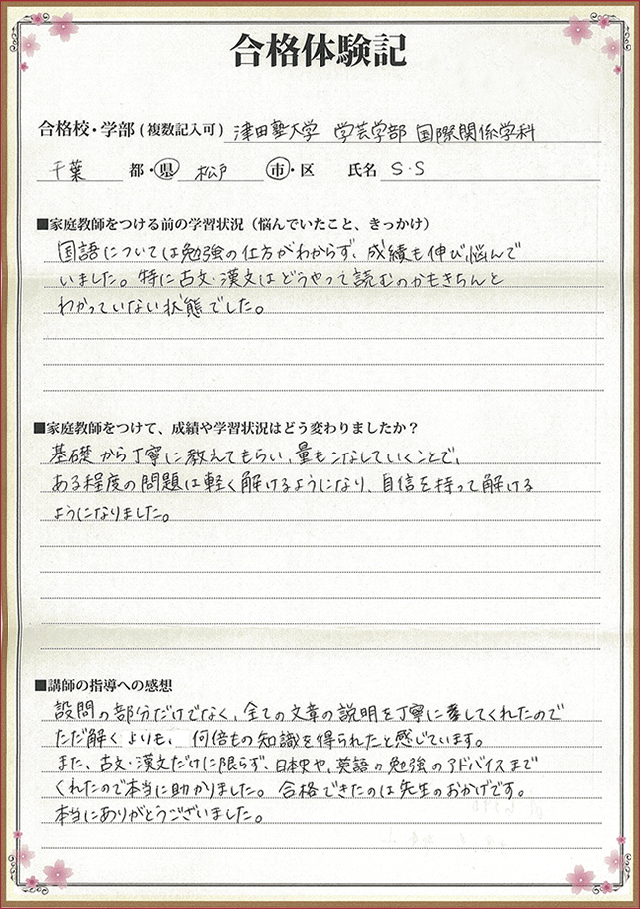 合格体験記
合格校・学部(複数記入可) 津田塾大学 学芸学部 国際関係学科
千葉 都・県 松戸 市・区 氏名 S.S
■家庭教師をつける前の学習状況(悩んでいたこと、きっかけ)
国語については勉強の仕方がわからず、成績も伸び悩んで
いました。特に古文・漢文はどうやって読むのかもきちんと
わかっていない状態でした。
■家庭教師をつけて、成績や学習状況はどう変わりましたか?
基礎から丁寧に教えてもらい、量もこなしていくことで、
ある程度の問題は軽く解けるようになり、自信を持って解ける
ようになりました。
■講師の指導への感想
設問の部分だけでなく、全ての文章の説明を丁寧にしてくれたので
ただ解くよりも、何倍もの知識を得られたと感じています。
また、古文・漢文だけに限らず、日本史や、英語の勉強のアドバイスまで
くれたので本当に助かりました。合格できたのは先生のおかげです。
本当にありがとうございました。